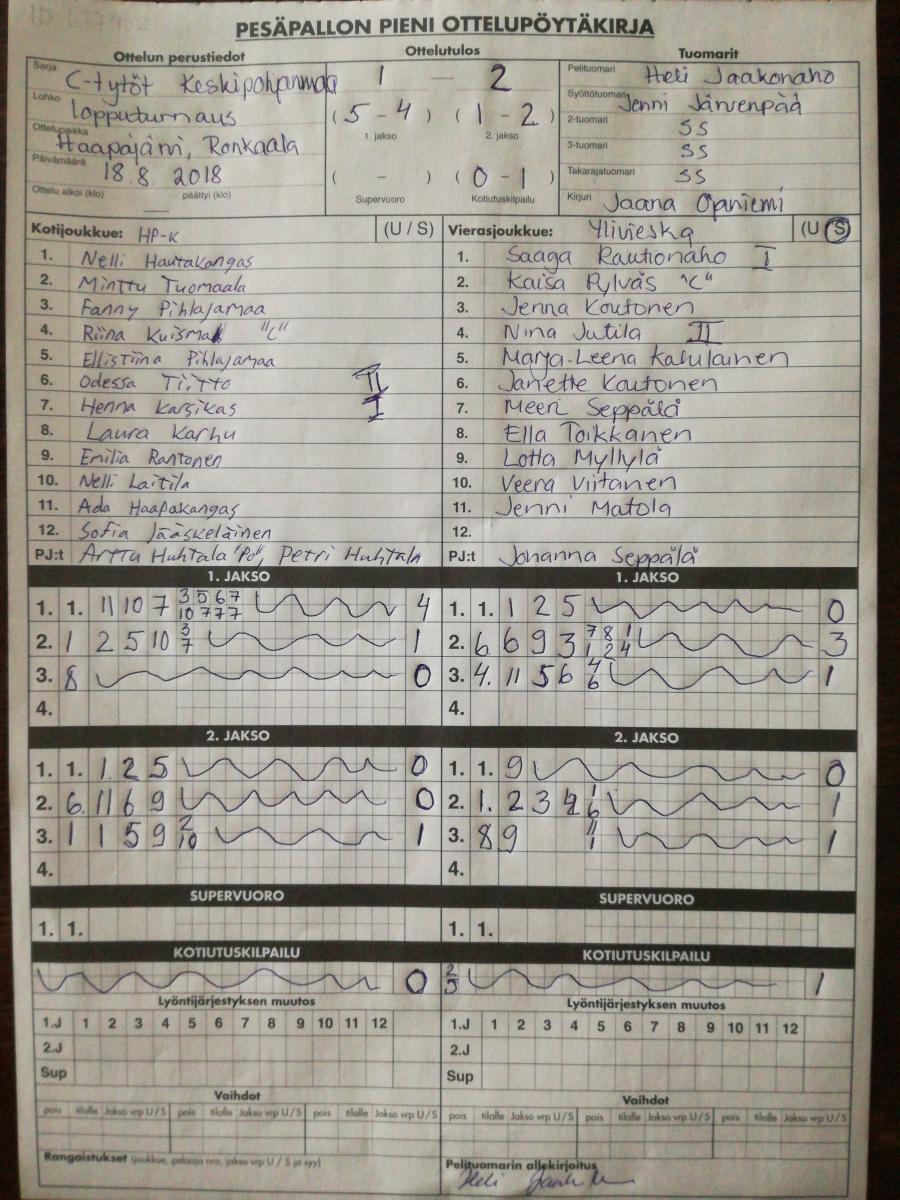 PESÄPALLON PIENI OTTELUPÖYTÄKIRJA
Ottelun perustiedot
Sarja C-tytöt Keskipohjanmaa
Lohko lopputurnaus
Ottelupaikka Haapajärvi, Ronkaala
Päivämäärä 18.8. 2018
Ottelu alkoi (klo) — päättyi (klo)
Ottelutulos
1 — 2
(5-4) (1-2)
1. jakso 2. jakso
( - ) (0-1)
Supervuoro Kotiutuskilpailu
Tuomarit
Pelituomari Heli Jaakonaho
Syöttötuomari Jenni Järvenpää
2-tuomari SS
3-tuomari SS
Takarajatuomari SS
Kirjuri Jaana Opniemi
Kotijoukkue: HP-K (U / S)
1. Nelli Hautakangas
2. Minttu Tuomaala
3. Fanny Pihlajamaa
4. Riina Kuisma "C"
5. Ellistiina Pihlajamaa
6. Odessa Tiitto II
7. Henna Karsikas I
8. Laura Karhu
9. Emilia Rantonen
10. Nelli Laitila
11. Ada Haapakangas
12. Sofia Jääskeläinen
PJ:t Arttu Huhtala "Po", Petri Huhtala
Vierasjoukkue: Ylivieska (U S)
1. Saaga Rautionaho I
2. Kaisa Pylväs "C"
3. Jenna Koutonen
4. Nina Jutila II
5. Marja-Leena Katulainen
6. Janette Koutonen
7. Meeri Seppälä
8. Ella Toikkanen
9. Lotta Myllylä
10. Veera Viitanen
11. Jenni Matola
12.
PJ:t Johanna Seppälä
1. JAKSO
1. 1. 11 10 7 3 5 6 7 4
10 7 7 7
2. 1 2 5 10 3 1
7
3. 8 0
4.
1. JAKSO
1. 1. 1 2 5 0
2. 6. 6 9 3 7 8 1 3
1 2 4
3. 4. 11 5 6 4 1
6
4.
2. JAKSO
1. 1. 1. 2 5 0
2. 6. 11 6 9 0
3. 1 1 5 9 2 1
10
4.
2. JAKSO
1. 1. 9 0
2. 1. 2 3 4 1 1
6
3. 8 9 11 1
1
4.
SUPERVUORO
1. 1.
SUPERVUORO
1. 1.
KOTIUTUSKILPAILU
0
KOTIUTUSKILPAILU
2 1
5
Lyöntijärjestyksen muutos
1.J 1 2 3 4 5 6 7 8 9 10 11 12
2.J
Sup
Lyöntijärjestyksen muutos
1.J 1 2 3 4 5 6 7 8 9 10 11 12
2.J
Sup
Vaihdot
pois tilalle Jakso vrp U / S pois tilalle Jakso vrp U / S pois tilalle Jakso vrp U / S
Vaihdot
pois tilalle Jakso vrp U / S pois tilalle Jakso vrp U / S pois tilalle Jakso vrp U / S
Rangaistukset (joukkue, pelaaja nro, jakso vrp U / S ja syy)
Pelituomarin allekirjoitus
Heli